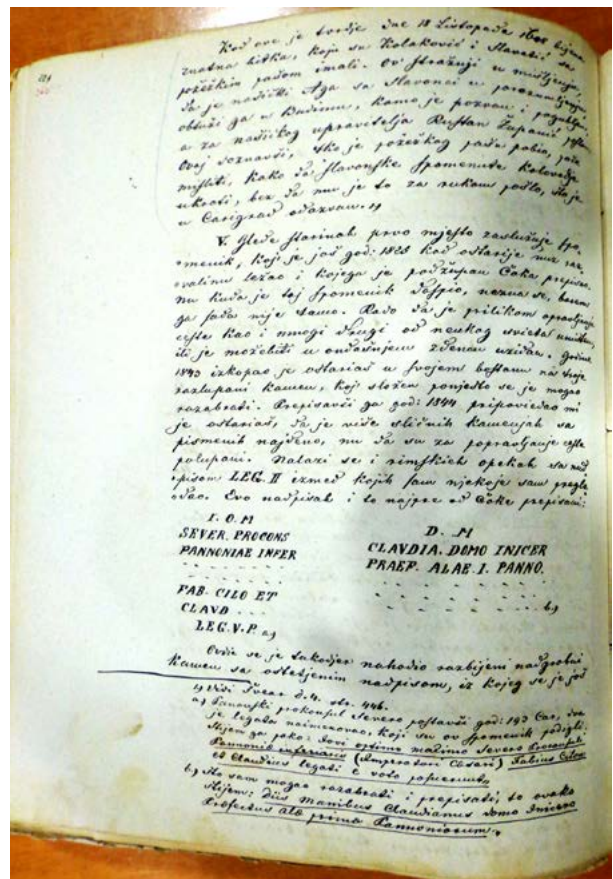 Kod ove je tvrdje dne 18 Listopada bijena
znatna bitka, koju su Kolaković i Slavetić sa
požeškim pašom imali. Ov stražnji u mišljenju,
da je našički Aga sa Slavonci u porazumljenju
obtuži ga u Budimu, kamo je pozvan i pogubljen
a za našičkog upravitelja Rustan Županić
Ovaj soznavši, tko je požeškog pašu pobio, poče
misliti, kako da Slavonske spomenute kolovodje
ukroti, bez da mu je to za rukom pošlo, što je
u Carigrad odazvan. 1)
V. Glede starinah prvo mjesto zaslužuje spo-
menik, koji je još god: 1828 kod oštarije
ovalinu ležao i kojega je podžupan Čoka prepisao.
Nu kuda je taj spomenik dospio, nezna se, barem
ga sada nije tamo. Rado da je prilikom opravljanja
ceste kao i mnogi drugi od neukog svieta uništen,
ili je možebiti u ondašnjem zdencu uzidan. Godine
1843 izkopao je oštariaš u svojem boštanu na troje
razlupani kamen, koj složen ponješto se je mogao
razabrati. Prepisavši ga god: 1844 pripoviedao mi
je oštariaš, da je više sličnih kamenjah sa
pismenih najdeno, nu da su za popravljanje ceste
potupani. Nalazi se i rimskih opekah sa nad
pisom LEG. II izmed kojih sam njekoje sam pregle
dao. Evo nadpisah i to najpre od Čoke prepisani:
I. O. M
SEVER. PROCONS
PANNONIAE INFER
. . . . . . . .
. . . . . . . .
FAB. CILO ET
CLAVD . . .
LEG. V. P. a)
D. M
CLAVDIA. DOMO INICER
PRAEF. ALAE. I. PANNO.
. . . . . . . .
. . . . . . . .
. . . . . . . . b)
Ovdje se je takodjer nahodio razbijeni nadgrobni
kamen sa oštetjenim nadpisom, iz kojeg se je još
1) Vidi Svear d. 4. str. 446.
a) Panonski prokonsul Severo postavši god: 193 Car, dva
je legata naimenovao, koji su ov spomenik podigli.
Štijem ga pako: Jovi optimo maximo Severo Proconsuli
Pannoniæ inferioris (Imperatori Cæsari) Fabius Cilo
et Claudius legati e voto posuerunt.
b) Što sam mogao razabrati i prepisati, to ovako
štijem: Diis Manibus Claudianus domo Inicero
Præfectus alæ prima Pannoniorum.